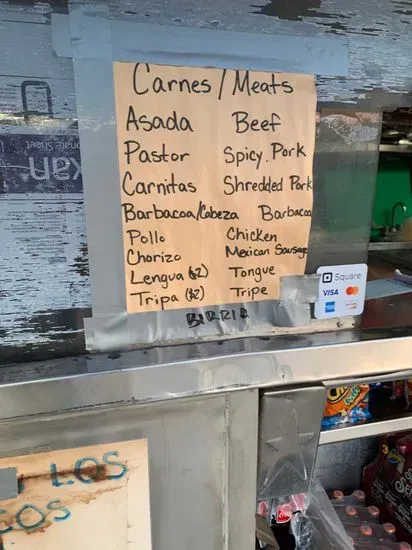 Carnes/Meats
Asada Beef
Pastor Spicy. Pork
Carnitas Shredded Pork
Barbacoa/Cabeza Barbacoa
Pollo Chicken
Chorizo Mexican Sausage
Lengua ($2) Tongue
Tripa ($2) Tripe
BIRRIA
Square
VISA
LOS
COS